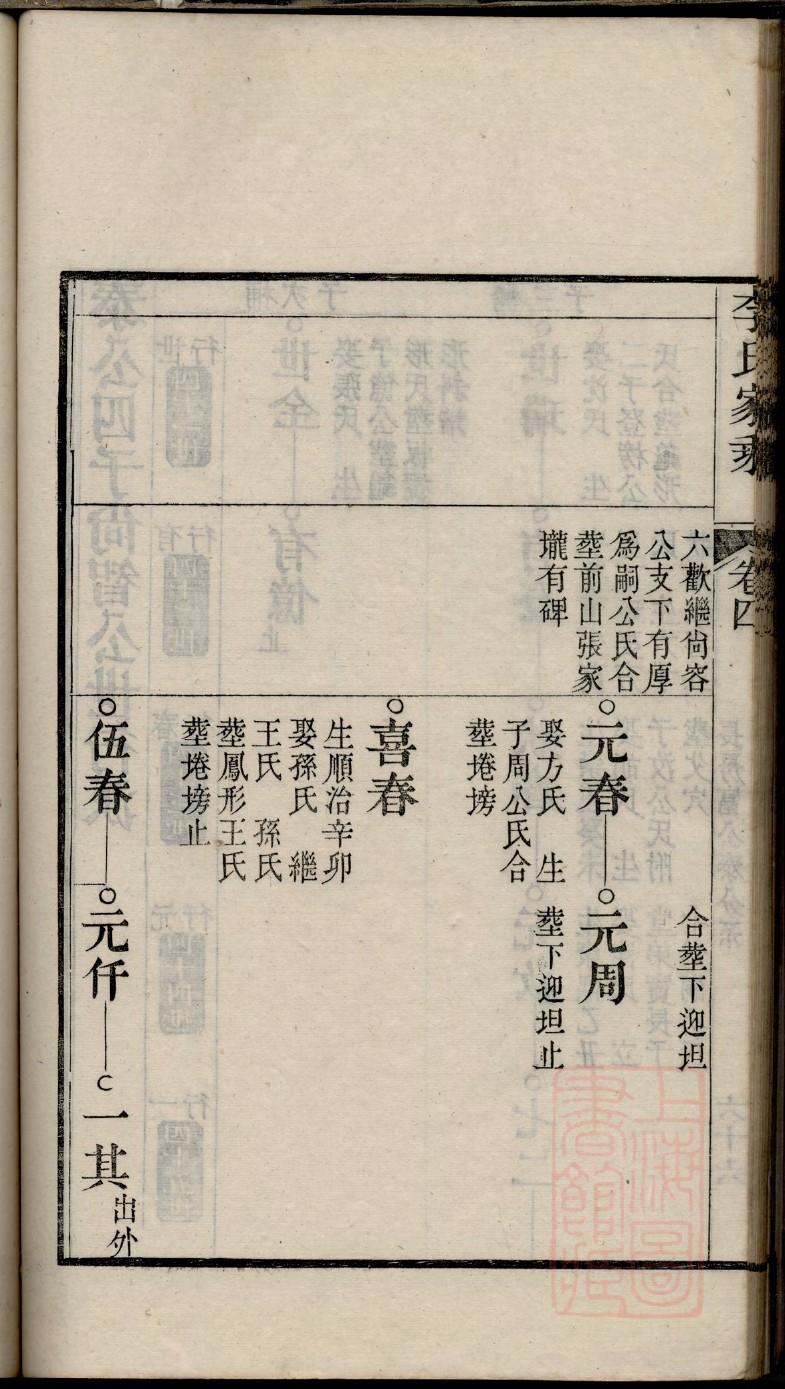 李氏家乘
卷四
六歡繼尙容
公支下有厚
爲嗣公氏合
塟前山張家
壠有碑
合塟下迎坦
元春
元周
塟下迎坦止
娶方氏　生
子周公氏合
塟捲塝
喜春
生順治辛卯
娶孫氏　繼
王氏　孫氏
塟鳳形王氏
塟捲塝止
伍春
元仟
一其
出外
上海圖
書館藏